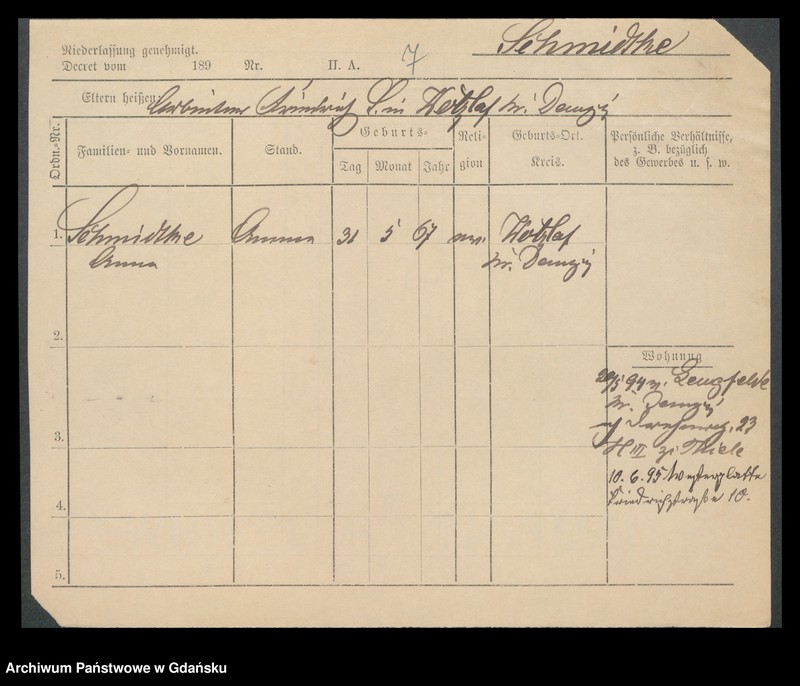 Schmidtke
Niederlassung genehmigt.
Decret vom 189 Nr. II. A. 7
Eltern heißen Friedrich S. in Wotzlaf Kr. Danzig
Ordn.-Nr.
Familien- und Vornamen.
Stand.
Geburts-
Tag Monat Jahr
Reli-
gion
Geburts-Ort.
Kreis.
Persönliche Verhältnisse,
z. B. bezüglich
des Gewerbes u. s. w.
1. Schmidtke 31 5 67 Wotzlaf
Anna Kr. Danzig
2.
Wohnung
94 v.
Kr. Danzig
23
H III zu Thiele
3.
10. 6. 95 Westerplatte
Friedrichstraße 10.
4.
5.
Archiwum Państwowe w Gdańsku